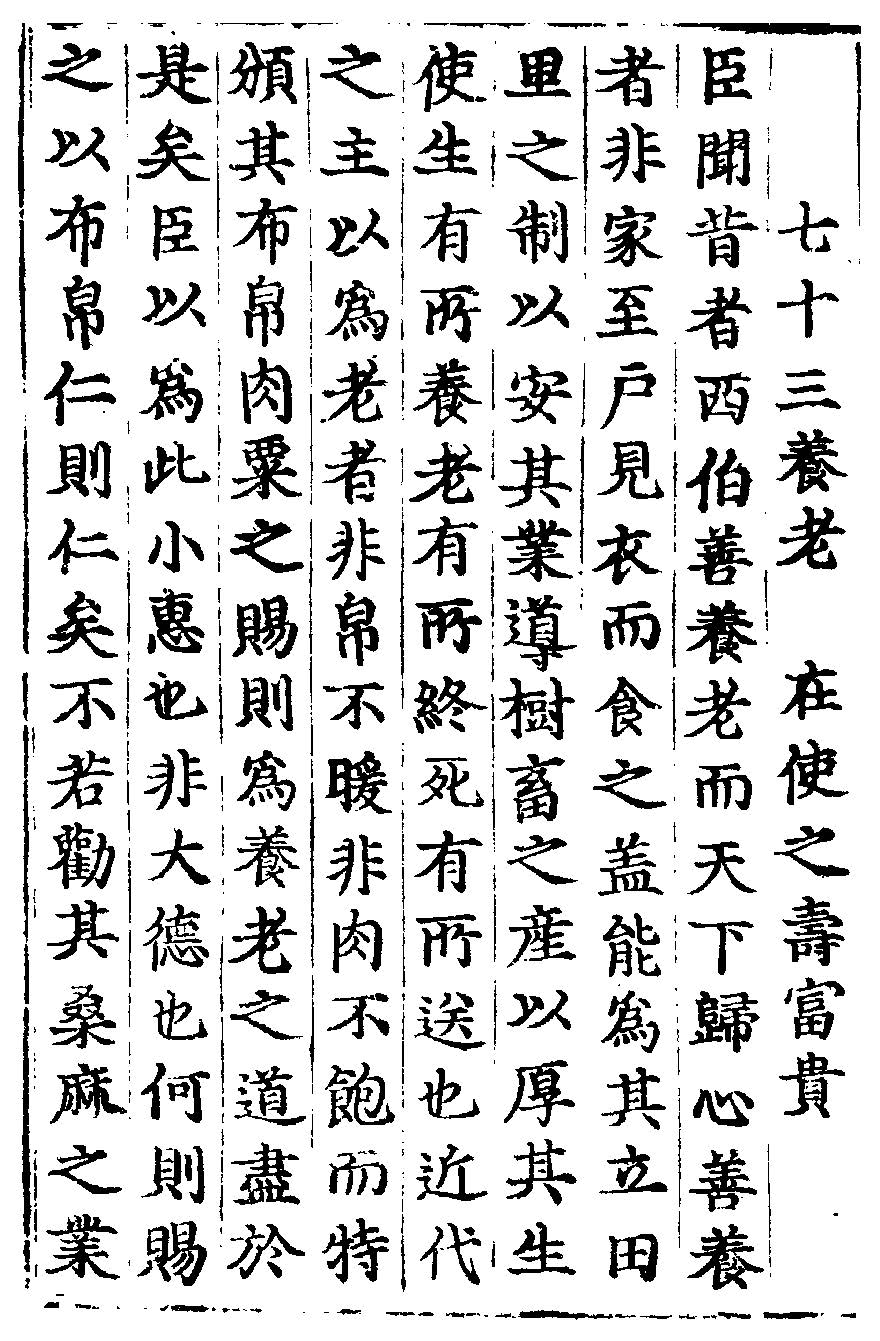 七十三養老　在使之壽富貴
臣聞昔者西伯善養老而天下歸心善養
者非家至戶見衣而食之盖能爲其立田
里之制以安其業導樹畜之産以厚其生
使生有所養老有所終死有所送也近代
之主以爲老者非帛不暖非肉不飽而特
頒其布帛肉粟之賜則爲養老之道盡於
是矣臣以爲此小惠也非大德也何則賜
之以布帛仁則仁矣不若勸其桑麻之業